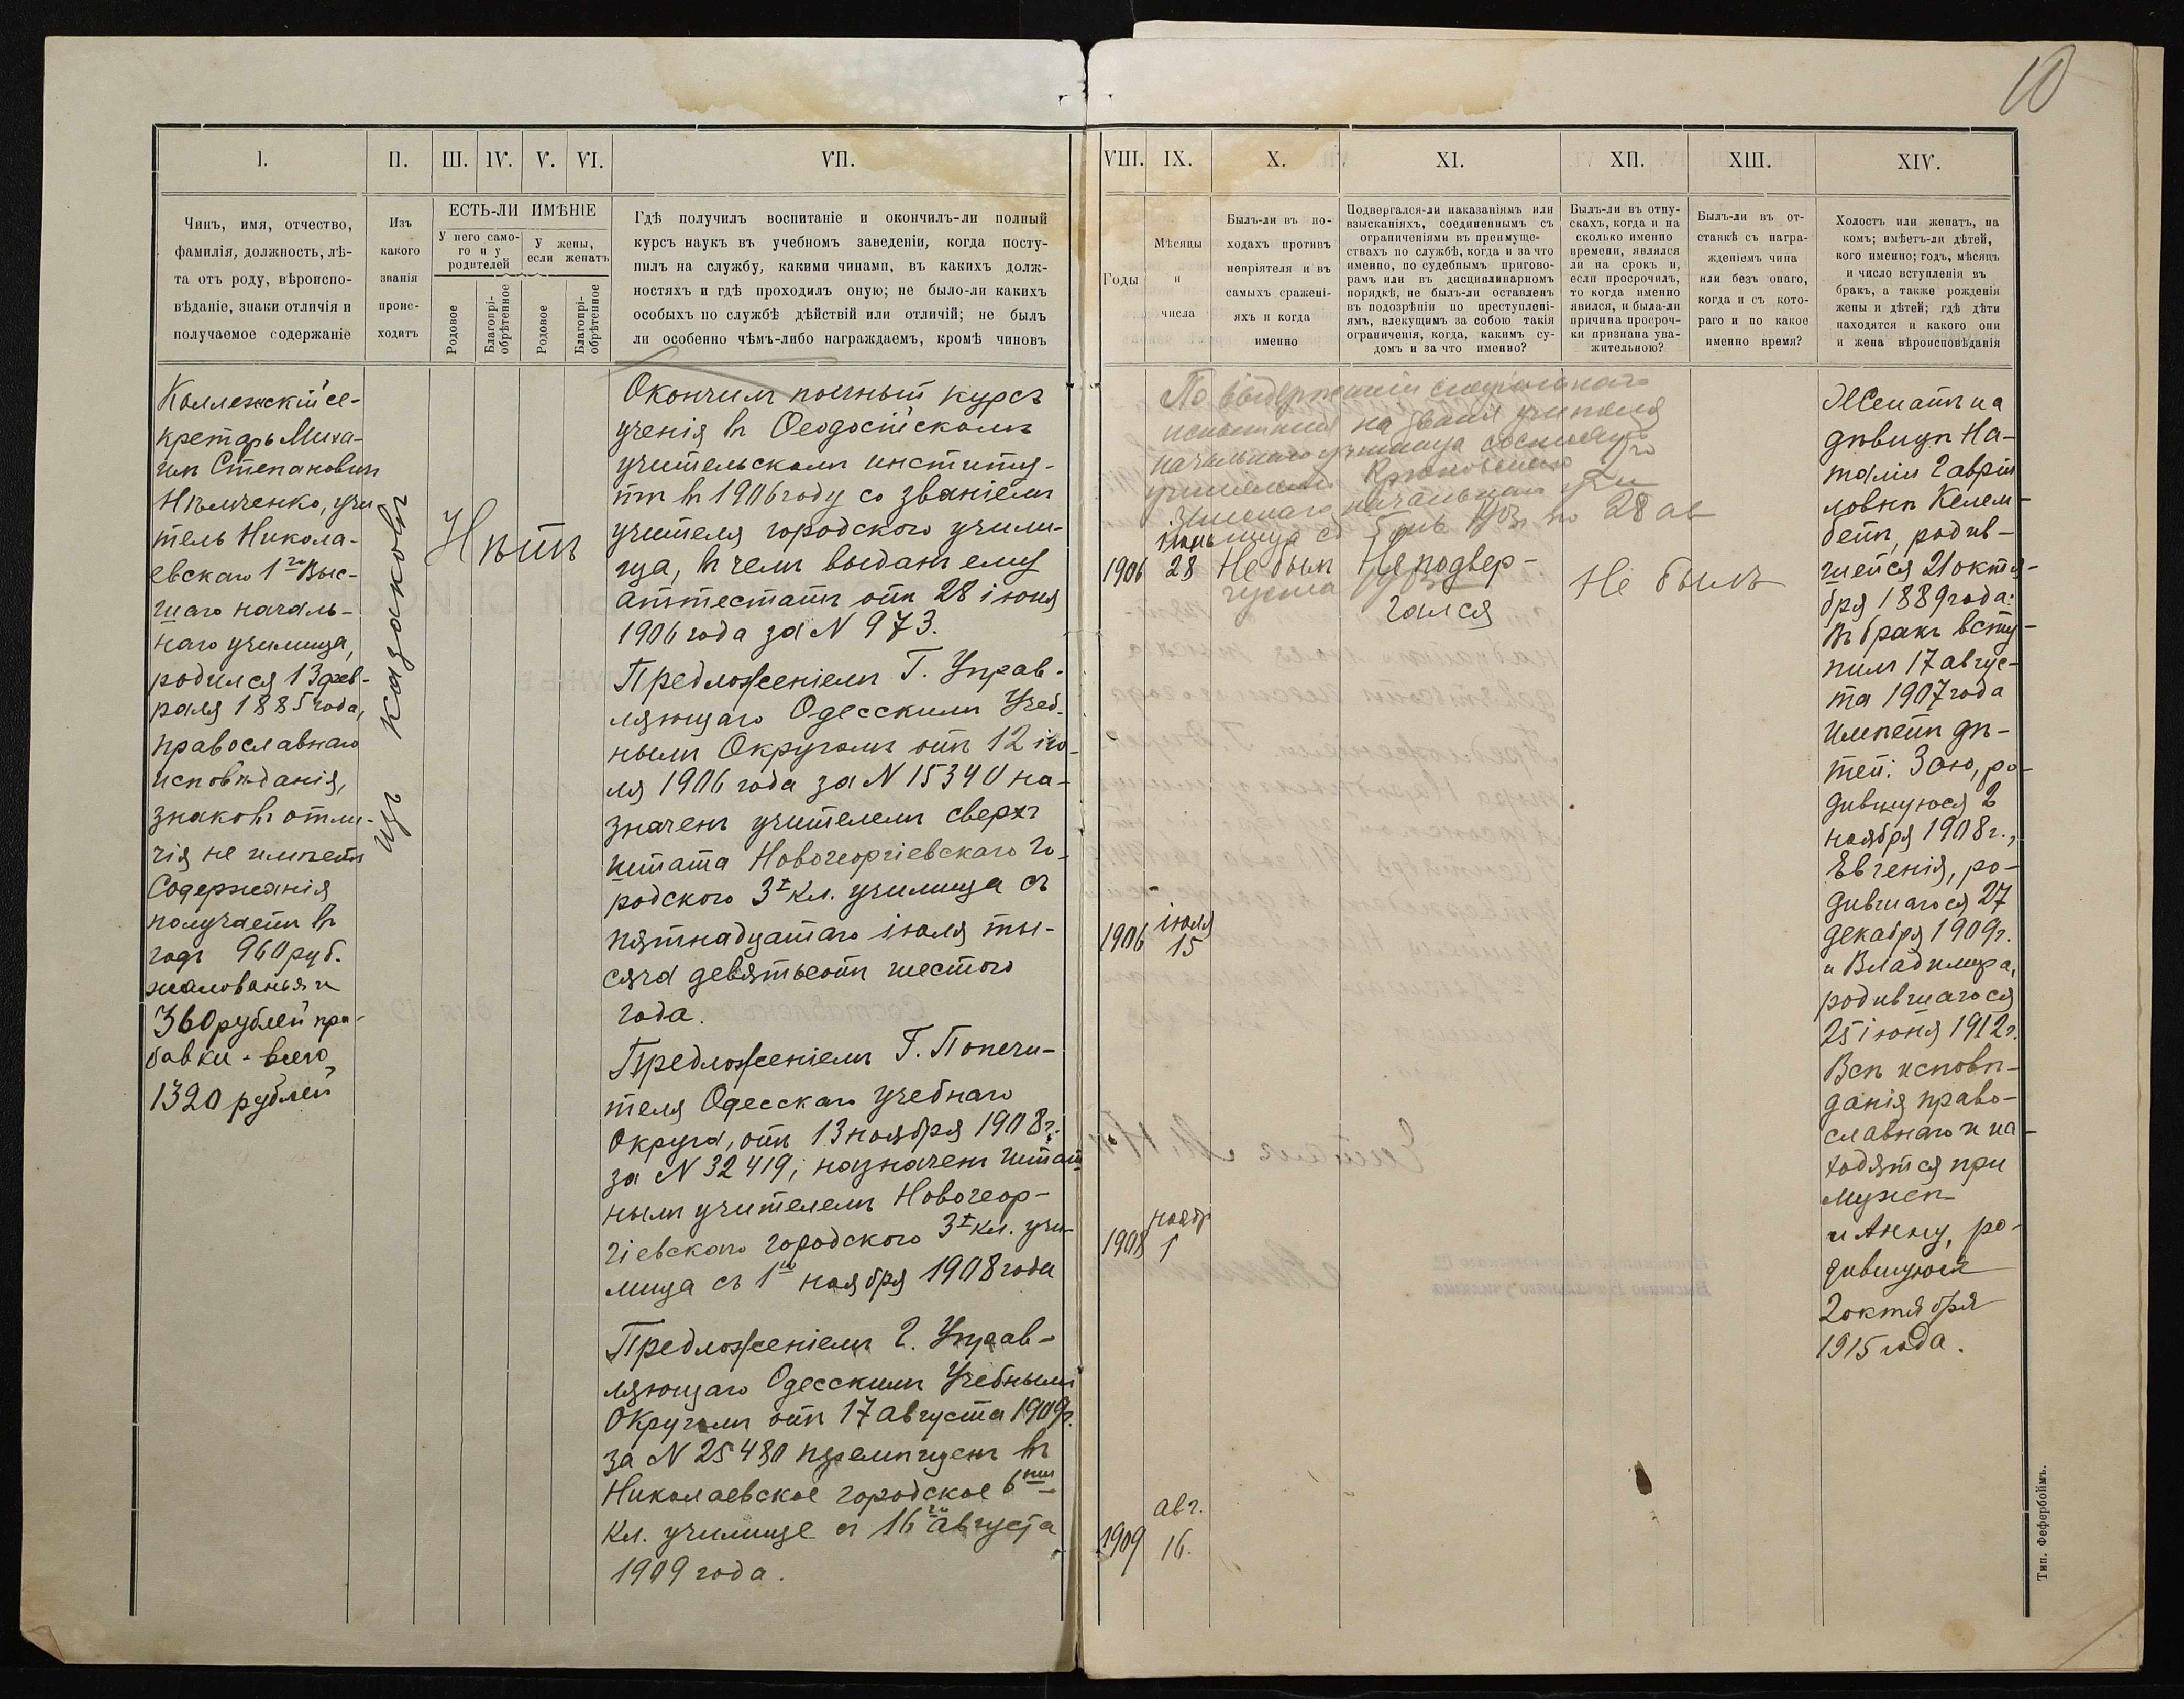 10
I.
Чинъ, имя, отчество,
фамилія, должность, лѣ-
та отъ роду, вѣроиспо-
вѣданіе, знаки отличія и
получаемое содержаніе
II.
Изъ
какого
званія
проис-
ходитъ
III. IV. V. VI.
ЕСТЬ-ЛИ ИМѢНІЕ
У него само-
го и у
родителей
У жены,
если женатъ
Родовое
Благопрі-
обрѣтенное
Родовое
Благопрі-
обрѣтенное
VII.
Гдѣ получилъ воспитаніе и окончилъ-ли полный
курсъ наукъ въ учебномъ заведеніи, когда посту-
пилъ на службу, какими чинами, въ какихъ долж-
ностяхъ и гдѣ проходилъ оную; не было-ли какихъ
особыхъ по службѣ дѣйствій или отличій; не былъ
ли особенно чѣмъ-либо награждаемъ, кромѣ чиновъ
VIII.
Годы
IX.
Мѣсяцы
и
числа
X.
Былъ-ли въ по-
ходахъ противъ
непріятеля и въ
самыхъ сражені-
яхъ и когда
именно
XI.
Подвергался-ли наказаніямъ или
взысканіяхъ, соединеннымъ съ
ограниченіями въ преимуще-
ствахъ по службѣ, когда и за что
именно, по судебнымъ пригово-
рамъ или въ дисциплинарномъ
порядкѣ, не былъ-ли оставленъ
въ подозрѣніи по преступлені-
ямъ, влекущимъ за собою такія
ограниченія, когда, какимъ су-
домъ и за что именно?
XII.
Былъ-ли въ отпу-
скахъ, когда и на
сколько именно
времени, являлся
ли на срокъ и,
если просрочилъ,
то когда именно
явился, и была-ли
причина просроч-
ки признана ува-
жительною?
XIII.
Былъ-ли въ от-
ставкѣ съ награ-
жденіемъ чина
или безъ онаго,
когда и съ кото-
раго и по какое
именно время?
XIV.
Холостъ или женатъ, на
комъ; имѣетъ-ли дѣтей,
кого именно; годъ, мѣсяцъ
и число вступленія въ
бракъ, а также рожденія
жены и дѣтей; гдѣ дѣти
находятся и какого они
и жена вѣроисповѣданія
Коллежскій се-
кретарь Миха-
илъ Степановичъ
Нѣмченко, учи
тель Никола-
евскаго 1го Выс-
шаго началь-
наго училища,
родился 13 фев-
раля 1885 года,
православнаго
исповѣданія,
знаковъ отли-
чія не имѣетъ
Содержанія
получаетъ въ
годъ 960 руб.
жалованья и
360 рублей при-
бавки - всего
1320 рублей
изъ казаковъ
Нѣтъ
Окончилъ полный курсъ
ученія въ Ѳеодосійскомъ
учительскомъ институ-
тѣ въ 1906 году со званіемъ
учителя городского учили-
ща, въ чемъ выданъ ему
аттестатъ отъ 28 іюня
1906 года за N 973.
Предложеніемъ Г. Управ-
ляющаго Одесскимъ Учеб-
нымъ Округомъ отъ 12 ію-
ля 1906 года за N 15340 на-
значенъ учителемъ сверхъ
штата Новогеоргіевскаго го-
родского 3х кл. училища съ
пятнадцатаго іюля ты-
сяча девятьсотъ шестого
года.
Предложеніемъ Г. Попечи-
теля Одесскаго учебнаго
Округа, отъ 13 ноября 1908 г.
за N 32419, назначенъ штат
нымъ учителемъ Новогеор-
гіевскаго городского 3х кл. учи-
лища съ 1го ноября 1908 года
Предложеніемъ г. Управ-
ляющаго Одесскимъ Учебнымъ
Округомъ отъ 17 августа 1909 г.
за N 25480 перемѣщенъ въ
Николаевское городское 6ти
кл. училище съ 16го августа
1909 года.
По выдержаніи спеціальнаго
испытанія на званіе учителя
начальнаго училища состоялъ
учителемъ Крюковскаго
начальнаго
28 ав
густа
іюнь
1906 28 Не былъ Не подвер-
гался
Не былъ
іюля
1906 15
ноябр
1908 1
авг.
1909 16.
Женатъ на
дѣвицѣ На-
таліи Гаврии
ловнѣ Келем-
бетъ, родив-
шейся 21 октя-
бря 1889 года:
Въ бракъ всту-
пилъ 17 авгус-
та 1907 года
Имѣетъ дѣ-
тей: Зою, ро-
дившуюся 2
ноября 1908 г.,
Евгенія, ро-
дившагося 27
декабря 1909 г.
и Владимира,
родившагося
25 іюня 1912 г.
Всѣ исповѣ-
данія право-
славнаго и на-
ходятся при
мужѣ
и Анну, ро-
дившуюся
2 октября
1915 года.
Тип. Фефербоймъ.